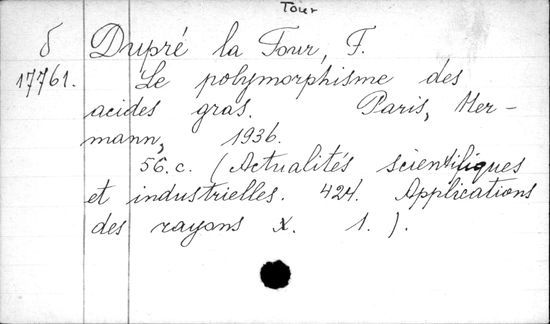 Tour
б Dupré la Tour, F.
17761. Le polymorphisme des
acides gras. Paris, Her-
mann, 1936.
56.c. (Actualités scientifiques
et industrielles. 424. Applications
des rayons X. 1.).